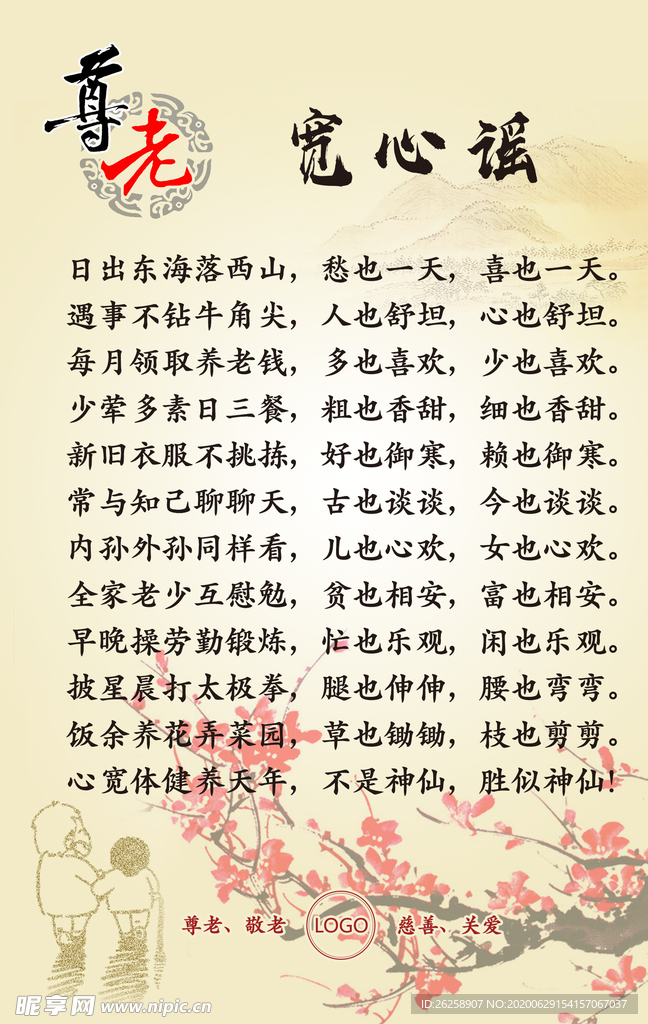 尊老
宽心谣
日出东海落西山，愁也一天，喜也一天。
遇事不钻牛角尖，人也舒坦，心也舒坦。
每月领取养老钱，多也喜欢，少也喜欢。
少荤多素日三餐，粗也香甜，细也香甜。
新旧衣服不挑拣，好也御寒，赖也御寒。
常与知己聊聊天，古也谈谈，今也谈谈。
内孙外孙同样看，儿也心欢，女也心欢。
全家老少互慰勉，贫也相安，富也相安。
早晚操劳勤锻炼，忙也乐观，闲也乐观。
披星晨打太极拳，腿也伸伸，腰也弯弯。
饭余养花弄菜园，草也锄锄，枝也剪剪。
心宽体健养天年，不是神仙，胜似神仙！
尊老、敬老 LOGO 慈善、关爱
昵享网 www.nipic.cn
ID:26258907 NO:20200629154157067037